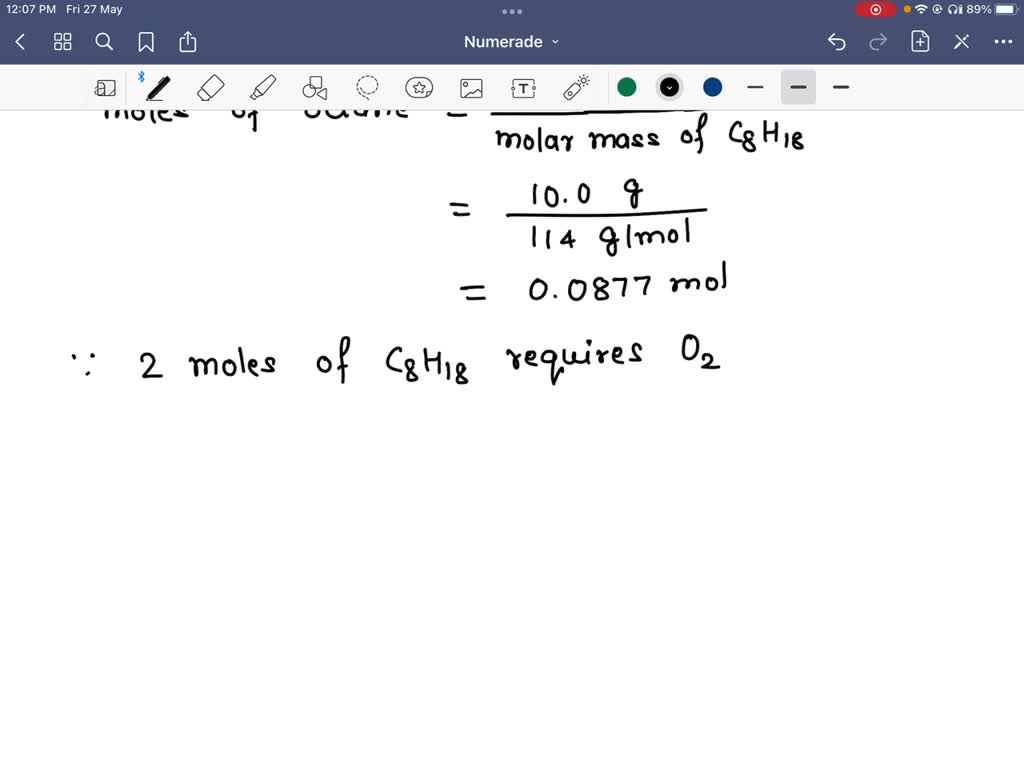 12:07 PM Fri 27 May 89%
Numerade
moles of octane =
molar mass of C8H18
= 10.0 g
114 g/mol
= 0.0877 mol
∵ 2 moles of C8H18 requires O2